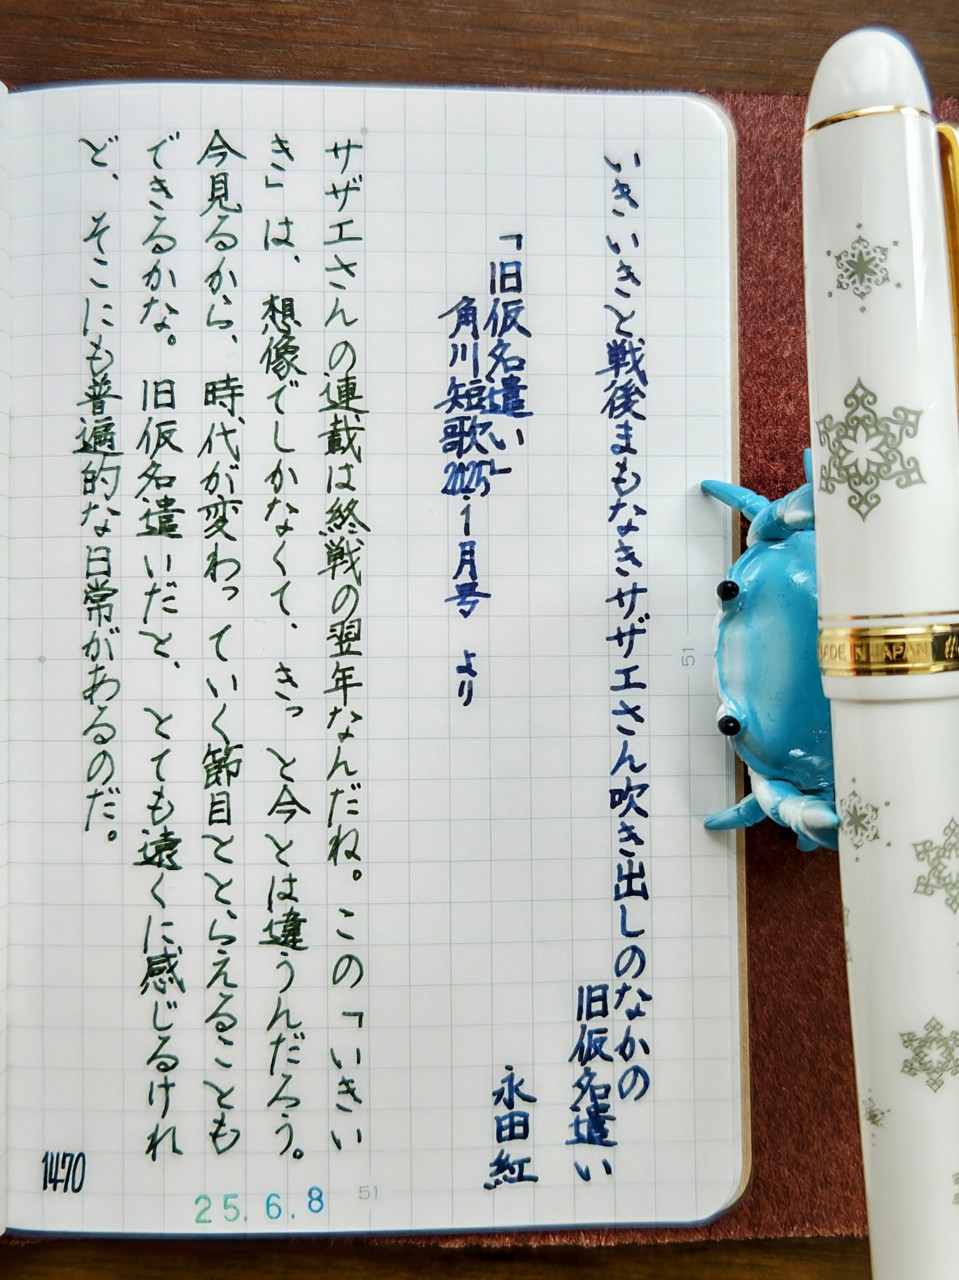 いきいきと戦後まもなきサザエさん吹き出しのなかの
旧仮名遣い
永田紅
「旧仮名遣い」
角川短歌2025.1月号 より
サザエさんの連載は終戦の翌年なんだね。この「いきい
き」は、想像でしかなくて、きっと今とは違うんだろう。
今見るから、時代が変わっていく節目ととらえることも
できるかな。旧仮名遣いだと、とても遠くに感じるけれ
ど、そこにも普遍的な日常があるのだ。
1470
25.6.8
51
51
MADE IN JAPAN